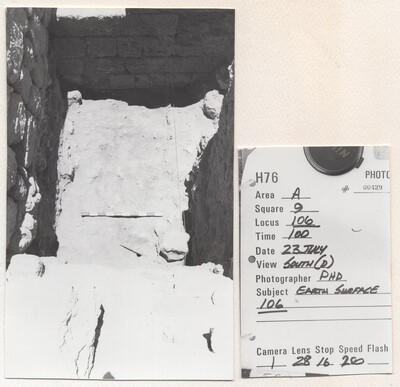 H76 PHOTO
№ 00429
Area A
Square 9
Locus 106
Time 100
Date 23 JULY
View SOUTH (D)
Photographer PHD
Subject EARTH SURFACE
106
Camera Lens Stop Speed Flash
1 28 16 250